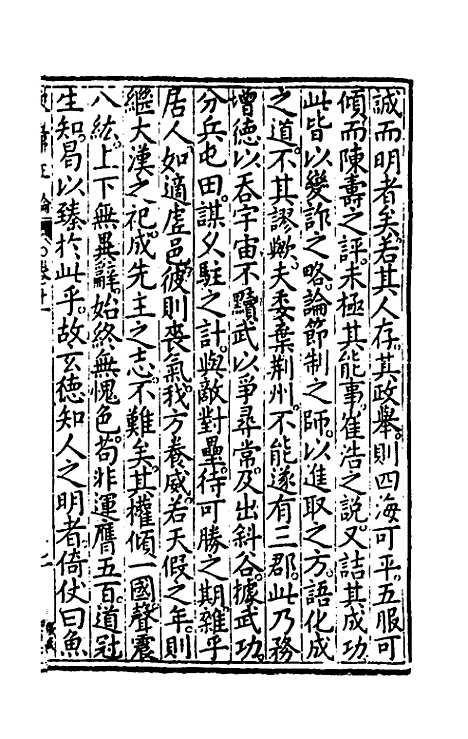 誠而明者矣若其人存其政舉則四海可平五服可
傾而陳壽之評未極其能事崔浩之說又詰其成功
此皆以變詐之略論節制之師以進取之方語化成
之道不其謬歟夫委棄荆州不能遂有三郡此乃務
增德以吞宇宙不黷武以爭尋常及出斜谷據武功
分兵屯田謀久駐之計與敵對壘待可勝之期雜乎
居人如適虛邑彼則喪氣我方養威若天假之年則
繼大漢之祀成先主之志不難矣其權傾一國聲震
八紘上下無異辭始終無愧色苟非運膺五百道冠
生知曷以臻於此乎故玄德知人之明者倚仗曰魚